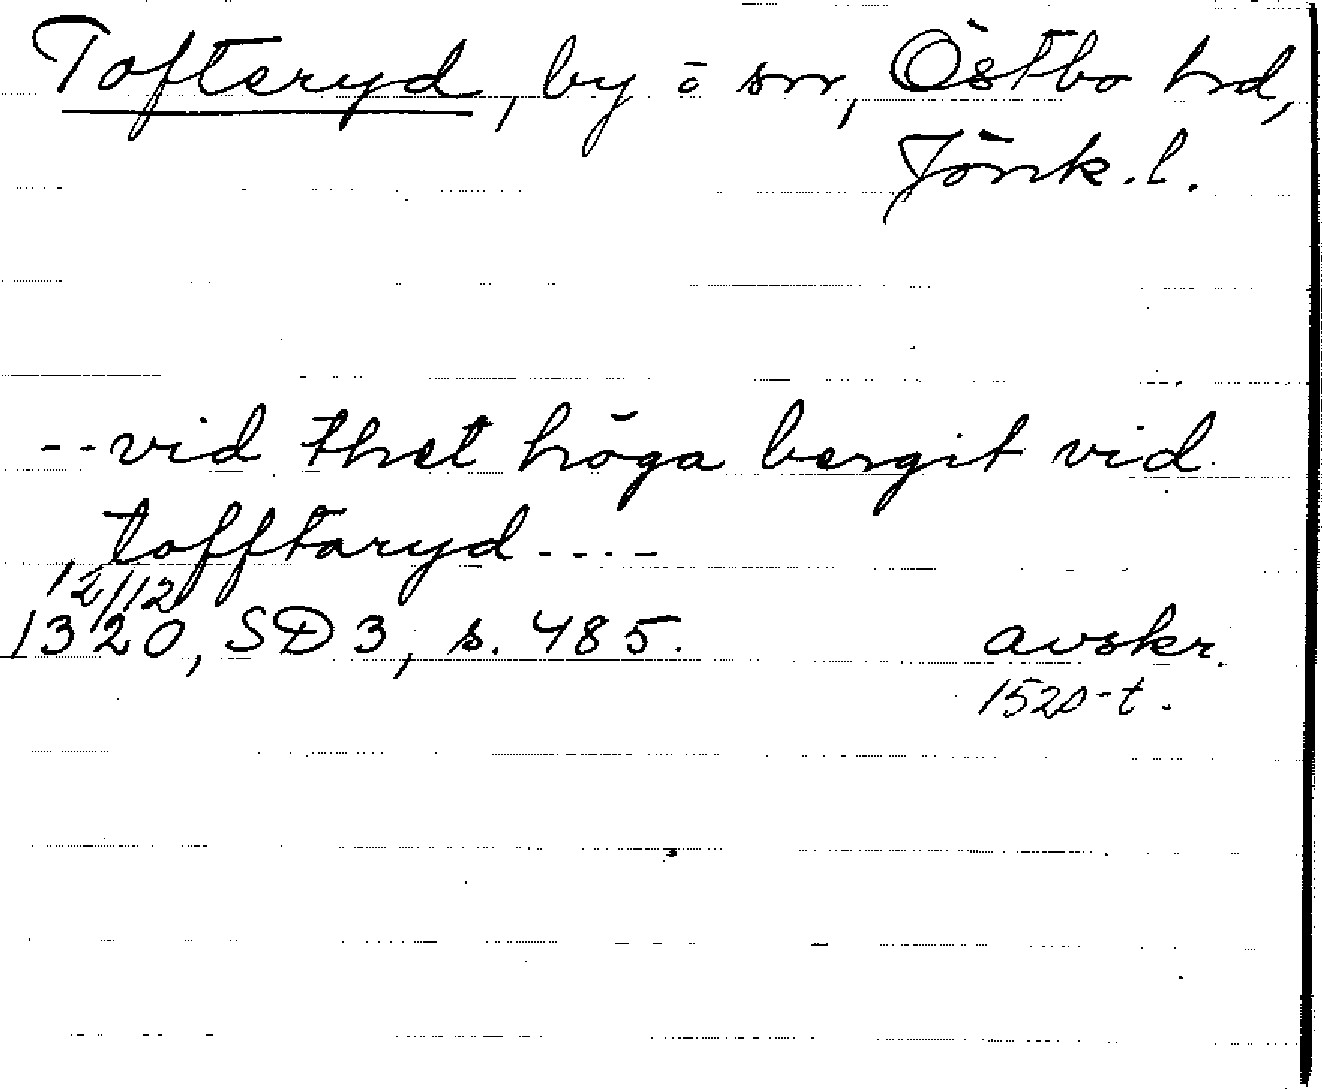 Tofteryd, by o sn, Östbo hd,
Jönk.l.
--vid thet höga bergit vid
tofftaryd----
12/12
1320, SD 3, s. 485. avskr.
1520-t.